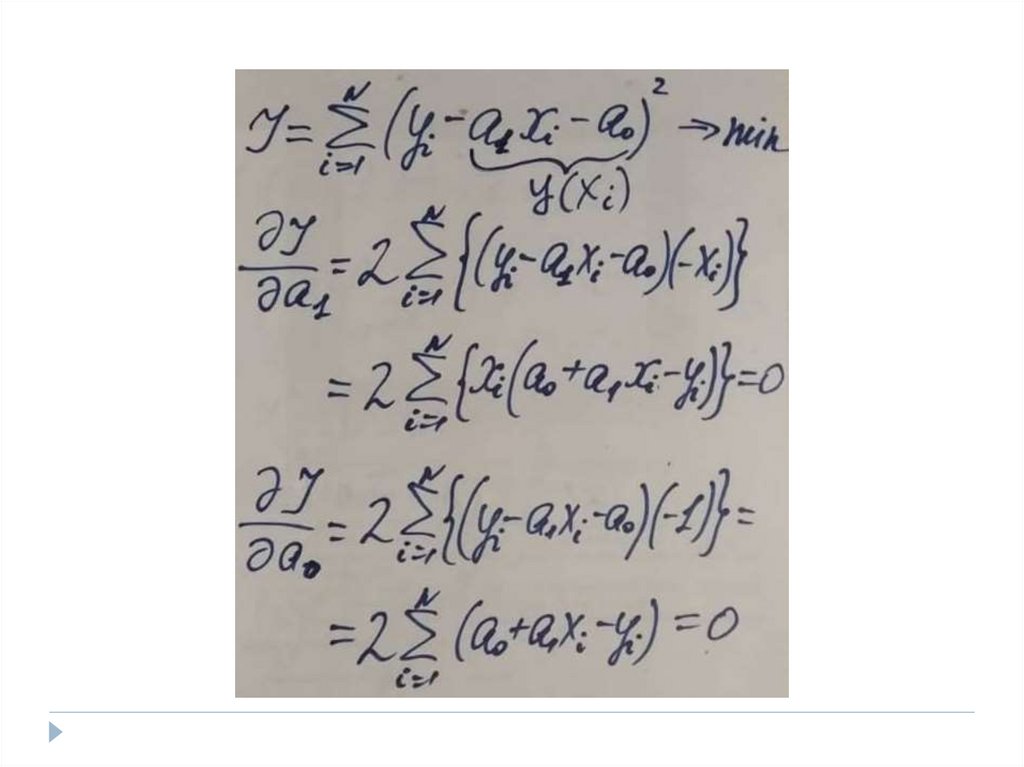 J = ∑_{i=1}^{N} (y_i - a_1 x_i - a_0)^2 → min
y(x_i)
∂J/∂a_1 = 2 ∑_{i=1}^{N} {(y_i - a_1 x_i - a_0)(-x_i)}
= 2 ∑_{i=1}^{N} {x_i (a_0 + a_1 x_i - y_i)} = 0
∂J/∂a_0 = 2 ∑_{i=1}^{N} {(y_i - a_1 x_i - a_0)(-1)} =
= 2 ∑_{i=1}^{N} (a_0 + a_1 x_i - y_i) = 0